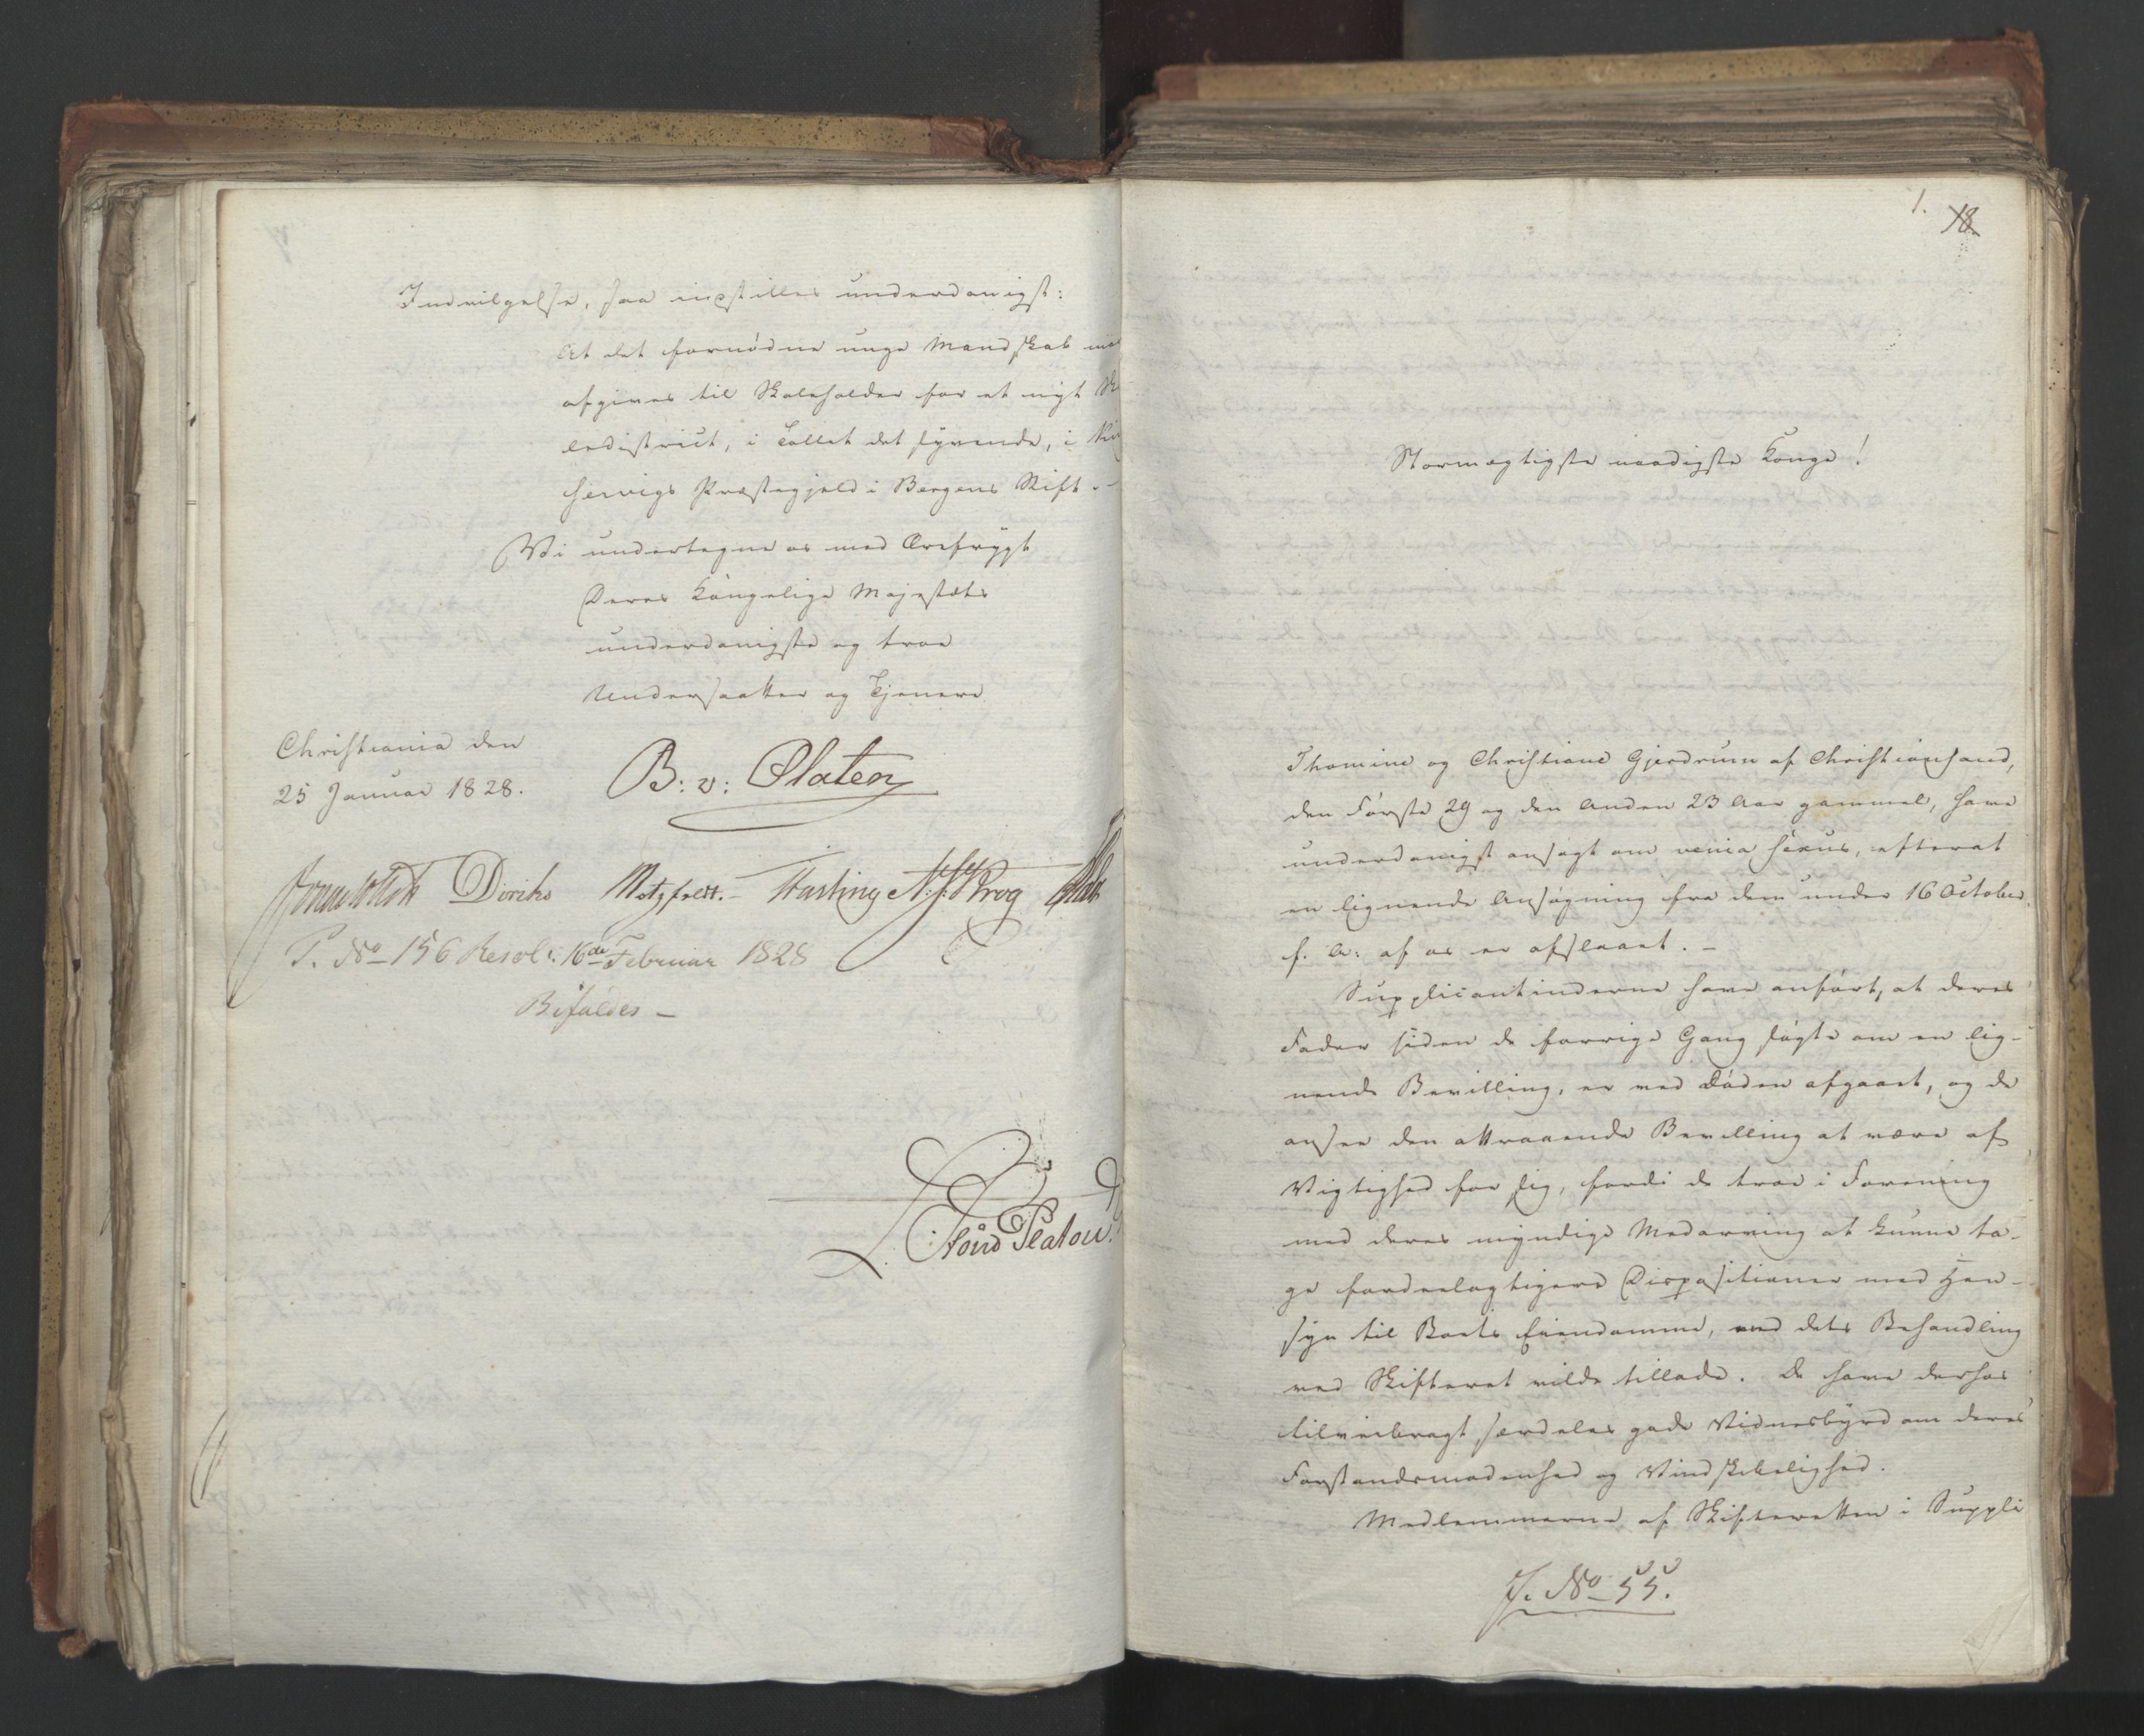 Indvilgelse, saa indstilles underdanigst:
At det fornødne unge Mandskab maa
afgives til Skoleholder for et nyt Sko
ledistrict, i Tallet det syvende, i Kin
servigs Præstegjeld i Bergens Stift. -
Vi undertegne os med Ærefrygt
Deres Kongelige Majestæts
underdanigste og troe
Undersaatter og Tjenere
Christiania den
25 Januar 1828.
B: v: Platen
Diriks Motzfeldt. - Fasting N. J. Krog
P. No 156 Resol: 16de Februar 1828
Bifaldes -
Platou.
1.
18
Stormægtigste naadigste Konge!
Thomine og Christiane Gjerdrum af Christiansand,
den Første 29 og den Anden 23 Aar gammel, have
underdanigst ansøgt om venia sexus, efterat
en lignende Ansøgning fra dem under 16 October
f. A: af os er afslaaet. -
Supplicantinderne have anført, at deres
Fader siden de forrige Gang søgte om en lig-
nende Bevilling, er ved Døden afgaaet, og de
ansee den attraaende Bevilling at være af
Vigtighed for sig, fordi de troe i Forening
med deres myndige Medarving at kunne ta-
ge fordeelagtigere Dispositioner med Hen-
syn til Boets Eiendomme, end dets Behandling
ved Skifteret vilde tillade. De have derhos
tilveiebragt særdeles gode Vidnesbyrd om deres
Forstandsmodenhed og Vindskibelighed.
Medlemmerne af Skifteretten i Suppli
J. No 55.